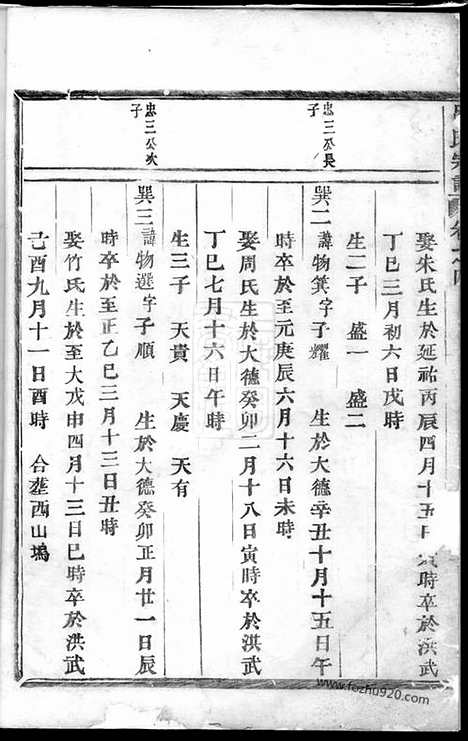 氏宗譜 卷之四
娶朱氏生於延祐丙辰四月十五日 時卒於洪武
丁巳三月初六日戌時
生二子 盛一 盛二
忠三公長子
巽二 諱物箕字子耀 生於大德辛丑十月十五日午
時卒於至元庚辰六月十六日未時
娶周氏生於大德癸卯二月十八日寅時卒於洪武
丁巳七月十六日午時
生三子 天貴 天慶 天有
忠三公次子
巽三 諱物選字子順 生於大德癸卯正月廿一日辰
時卒於至正乙巳三月十三日丑時
娶竹氏生於至大戊申四月十三日巳時卒於洪武
己酉九月十一日酉時 合塟西山塢
www.fozhu920.com